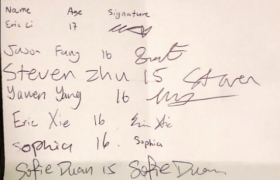 Name Age Signature
Eric Li 17
Jason Fung 16
Steven Zhu 15 Steven
Yawen Yang 16
Eric Xie 16 Eric Xie
Sophia 16. Sophia
Sofie Duan 15 Sofie Duan